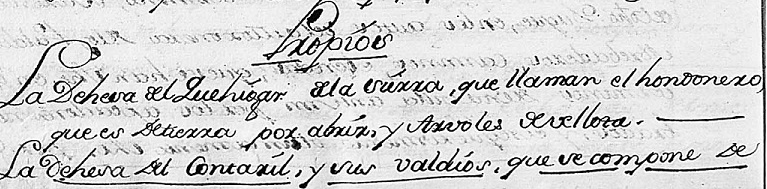 Propiôs
La Dehesa del Quehigar de la Sierra, que llaman el hondonero,
que es de tierra por abrir, y Arvoles de vellota.
La Dehesa del Contaxil, y sus valdiôs, que se compone de